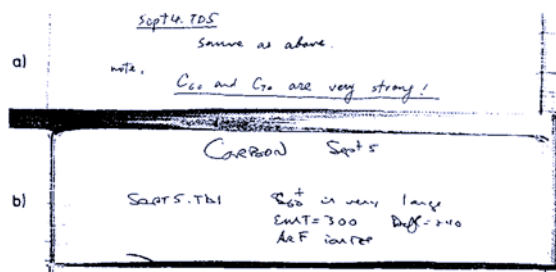 Sept 4. TD5
same as above.
a)
note. C60 and C70 are very strong!
CARBON Sept 5
b) SEPT 5. TD1 C60+ is very large
EMT = 300 Defl = 240
ArF ionize